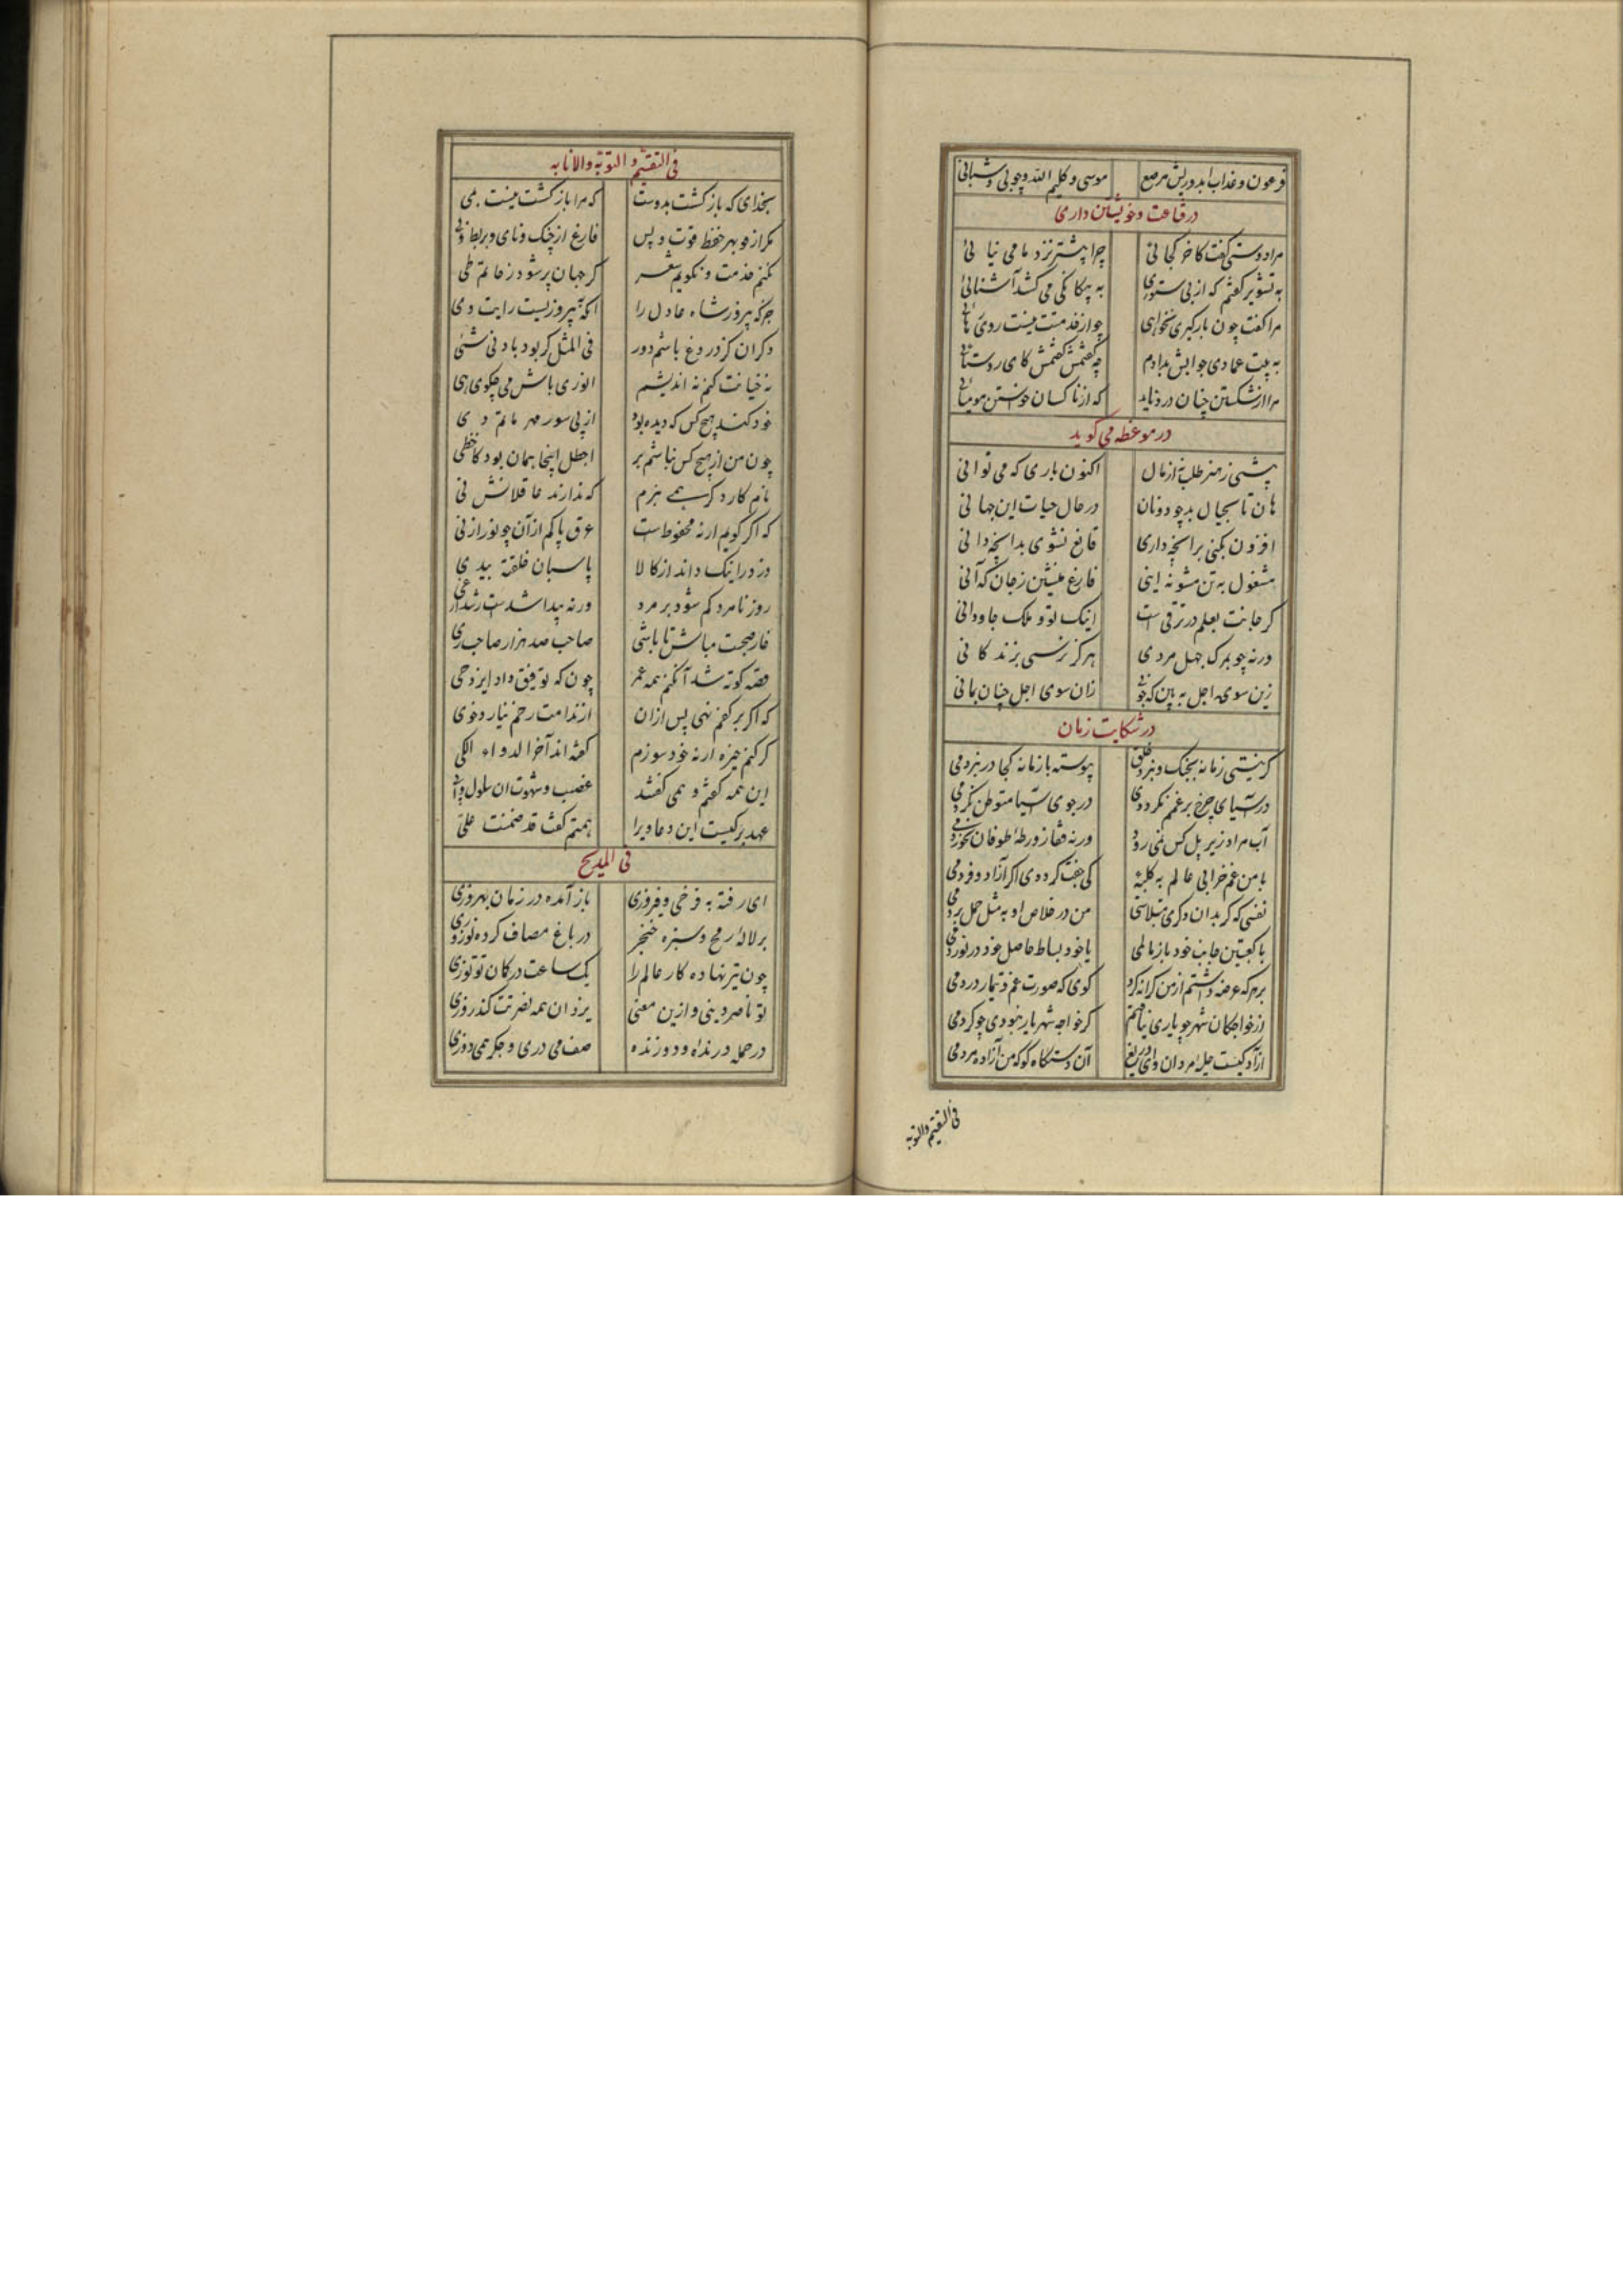 فرعون و عذاب ابد و ریش مرصع موسی و کلیم الله و چوبی و شبانی
در قناعت و خویشتن داری
مرا دوستی گفت کاخر کجائی چرا بیشتر نزد ما می نیائی
به تشویر گفتم که از بی ستوری به بیگانگی می کشد آشنائی
مرا گفت چون بارگیری نخواهی چو از خدمتت نیست روی رهائی
به بیت عمادی جوابش بدادم چه گفتمش گفتمش کای روستائی
مرا از شکستن چنان درد ناید که از ناکسان خواستن مومیائی
در موعظه می گوید
بیشی ز هنر طلب نه از مال اکنون باری که می توانی
هان تا بحیال بد چو دونان در حال حیات این جهانی
افزون نکنی بر انچه داری قانع نشوی بدانچه دانی
مشغول به تن مشو نه اینی فارغ منشین ز جان که آنی
گر جانت بعلم در ترقی است اینک تو و ملک جاودانی
ورنه چو بمرگ جهل مردی هرگز نرسی بزندگانی
زین سوی اجل به بین که چونی زان سوی اجل چنان بمانی
در شکایت زمان
گر نیستی زمانه بجنگ و نبرد خلق پیوسته با زمانه کجا در نبردمی
در آسیای چرخ بر غم نگرددی در جوی آسیا متوطن نگردمی
آب مراد زیر پل کس نمی رود ورنه قفا ز ورطه طوفان نخوردمی
با من غم خرابی عالم به کلبه کی جفت کرده دی اگر آزاد و فردمی
نفسی که گر بدان دگری مبتلاستی من در خلاص او به مثل حمل بردمی
با کعبتین جانب خود باز مالمی یا خود بساط حاصل خود در نوردمی
بر هر که عرضه داشتم از من کرانه کرد گوی که صورت غم و تیمار دردمی
از خواجگان شهر چو یاری نیافتم گر خواجه شهریار نبودی چو کردمی
آزاد کیست جمله مردان وای دریغ آن دستگاه کو که من آزاده مردمی
فی التقیم والتوبه
فی التقیم و التوبة والانابه
بخدای که بازگشت بدوست که مرا بازگشت نیست بمی
مگر از مو بهر حفظ قوت و پس فارغ از چنگ و نای و بربط و نی
نکنم خدمت و نگویم شعر گر جهان پر شود ز حاتم طی
جز که پیروز شاه عادل را انکه پیروزیست رایت وی
دگران کز دروغ باشم دور فی المثل گر بود بادنی شئی
نه خیانت کنم نه اندیشم انوری باش می چگوی هی
خود کند هیچ کس که دیده بود از پی سور مهر ماتم دی
چون من از هیچ کس نباشم بر اجطل اینجا همان بود کاخطی
بانم کار دگر همی بزم که ندارند عاقلانش نی
که اگر گویم ارنه محفوظ است عرق پاکم از آن چو نور از نی
دزد را اینک داند از کالا پاسبان خلقه بیدی
روز نامرد کم شود بر مرد ورنه پیدا شدست رشد از غی
خارجیت مباش تا باشی صاحب صد هزار صاحب ری
قصه کوته شد آنکنم همه عمر چون که توفیق داد ایزد حی
که اگر بر کفم نهی پس ازان از ندامت رخم نیارد خوی
گر کنم جزه ارنه خود سوزم گفته اند آخر الدواء الکی
این همه گفتم و نمی گفتند غضب و شهوت ان سلول و ابی
عهد بر کیست این دعاوی را همتم گفت قد ضمنت علی
فی المدیح
ای رفته به فرخی و فیروزی باز آمده در زمان بهروزی
بر لاله رمح و سبزه خنجر در باغ مصاف کرده نوروزی
چون تیر نهاده کار عالم را یک ساعت در کمان تو توزی
تو ناصر دینی و ازین معنی یزدان همه نصرتت کند روزی
در حمله درنده و دوزنده صف می دری و جگر همی دوزی